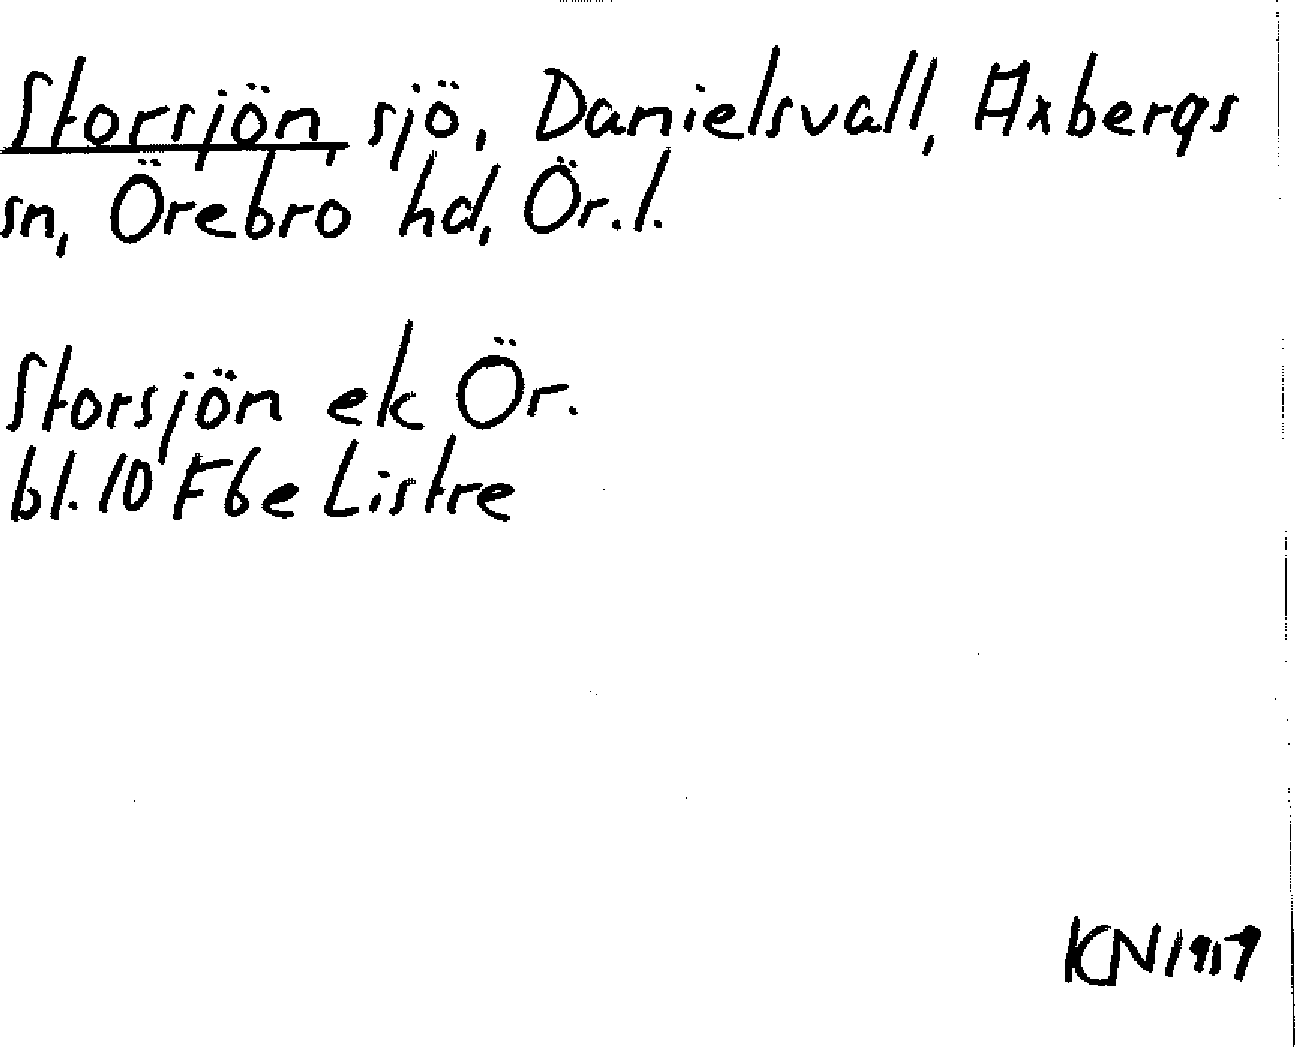 Storsjön, sjö, Danielsvall, Axbergs
sn, Örebro hd, Ör.l.
Storsjön ek Ör.
bl. 10 F6e Listre
KN 1917